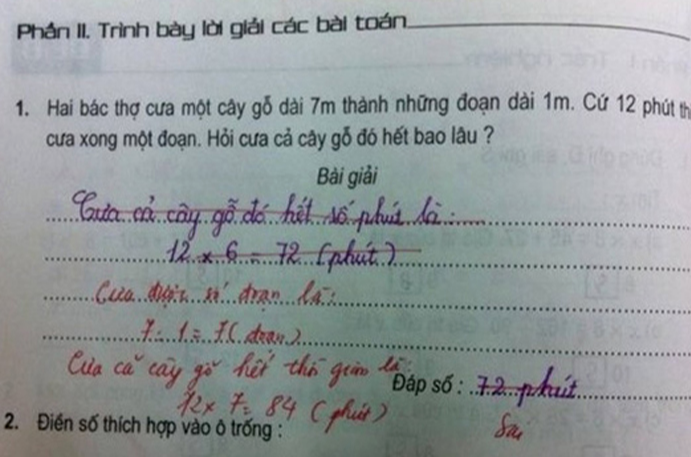 Phần II. Trình bày lời giải các bài toán
1. Hai bác thợ cưa một cây gỗ dài 7m thành những đoạn dài 1m. Cứ 12 phút th
cưa xong một đoạn. Hỏi cưa cả cây gỗ đó hết bao lâu ?
Bài giải
Cưa cả cây gỗ đó hết số phút là :
12 x 6 = 72 (phút)
Cưa được số đoạn là:
7 : 1 = 7 (đoạn)
Cưa cả cây gỗ hết thời gian là:
Đáp số : 72 phút
12 x 7 = 84 (phút)
Sai
2. Điền số thích hợp vào ô trống :